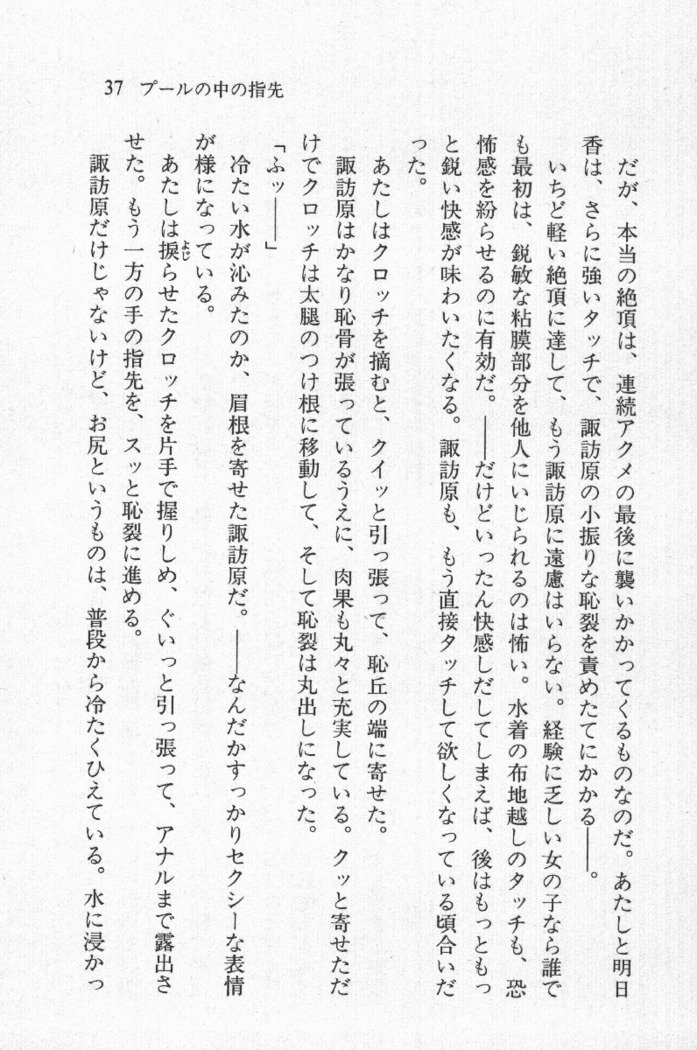 37 プールの中の指先
だが、本当の絶頂は、連続アクメの最後に襲いかかってくるものなのだ。あたしと明日
香は、さらに強いタッチで、諏訪原の小振りな恥裂を責めたてにかかる――。
いちど軽い絶頂に達して、もう諏訪原に遠慮はいらない。経験に乏しい女の子なら誰で
も最初は、鋭敏な粘膜部分を他人にいじられるのは怖い。水着の布地越しのタッチも、恐
怖感を紛らせるのに有効だ。――だけどいったん快感しだしてしまえば、後はもっともっ
と鋭い快感が味わいたくなる。諏訪原も、もう直接タッチして欲しくなっている頃合いだ
った。
あたしはクロッチを摘むと、クイッと引っ張って、恥丘の端に寄せた。
諏訪原はかなり恥骨が張っているうえに、肉果も丸々と充実している。クッと寄せただ
けでクロッチは太腿のつけ根に移動して、そして恥裂は丸出しになった。
「ふッ――」
冷たい水が沁みたのか、眉根を寄せた諏訪原だ。――なんだかすっかりセクシーな表情
が様になっている。
あたしは捩らせたクロッチを片手で握りしめ、ぐいっと引っ張って、アナルまで露出さ
よじ
せた。もう一方の手の指先を、スッと恥裂に進める。
諏訪原だけじゃないけど、お尻というものは、普段から冷たくひえている。水に浸かっ